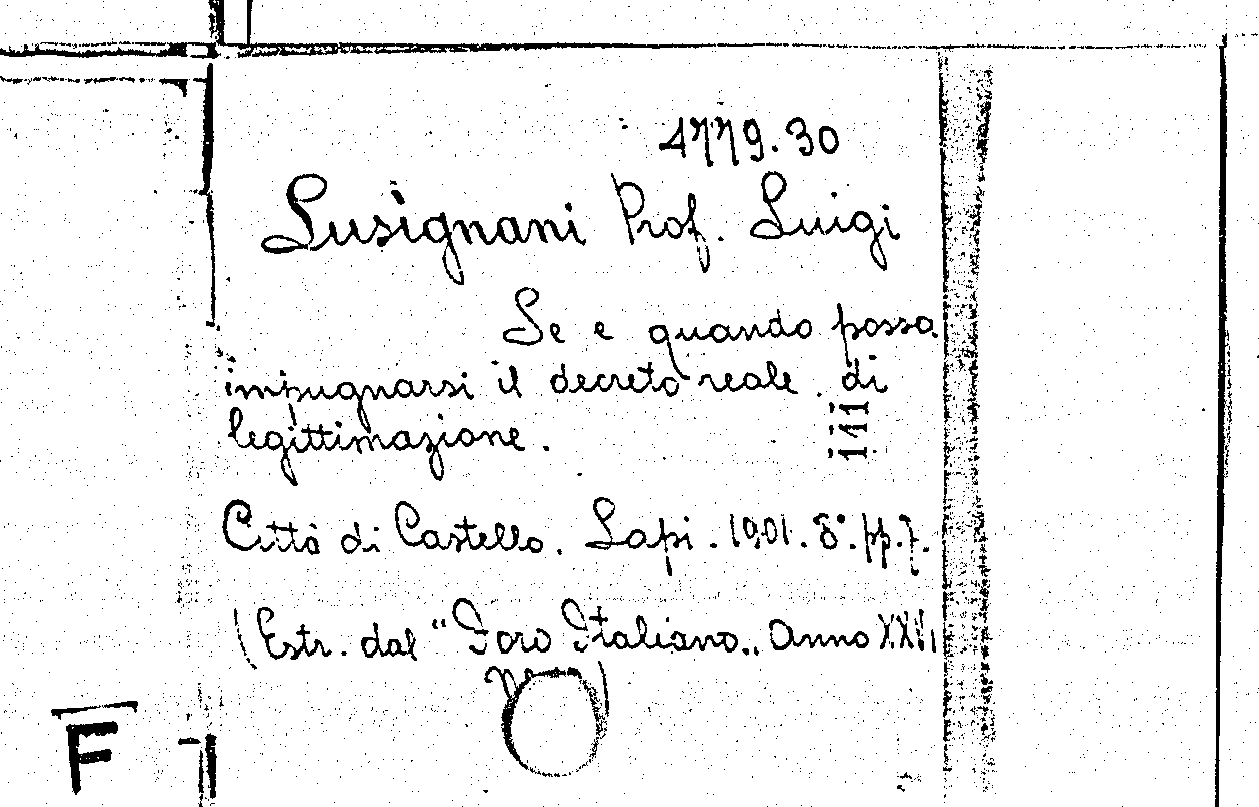 4779.30
Lusignani Prof. Luigi
Se e quando possa
impugnarsi il decreto reale di
legittimazione.
Città di Castello. Lapi. 1901. 8°. pp. 7.
(Estr. dal "Foro Italiano„ Anno XXVI
F